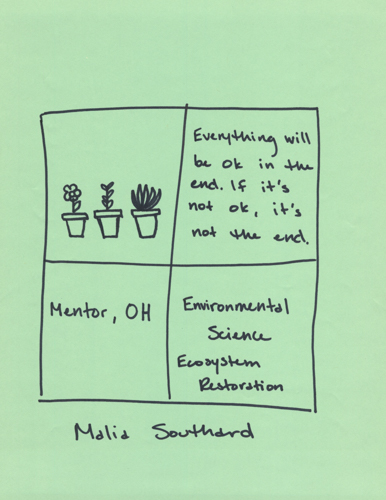 Everything will
be ok in the
end. If it's
not ok, it's
not the end.
Mentor, OH
Environmental
Science
Ecosystem
Restoration
Malia Southard